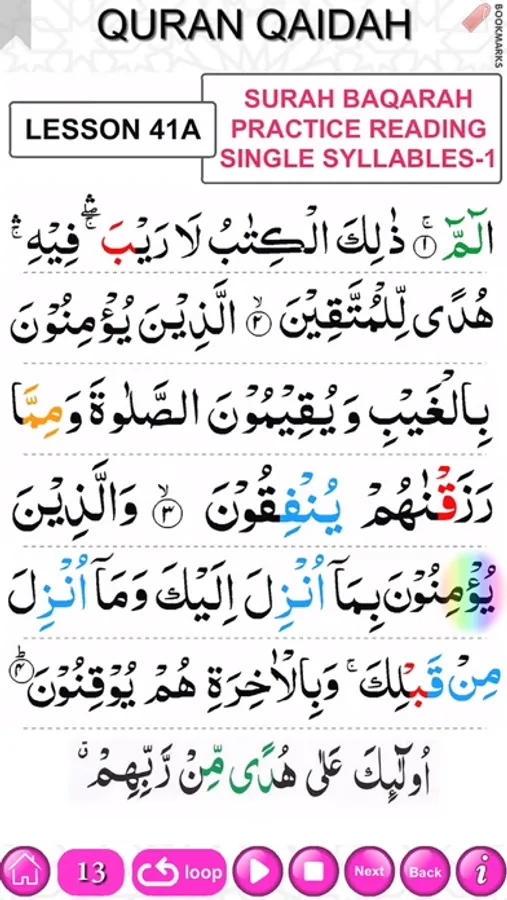 QURAN QAIDAH
BOOKMARKS
LESSON 41A
SURAH BAQARAH
PRACTICE READING
SINGLE SYLLABLES-1
الٓمّٓ ۚ ﴿۱﴾ ذٰلِكَ الْكِتٰبُ لَا رَيْبَ ۛۖ فِيْهِ ۛۚ
هُدًى لِّلْمُتَّقِيْنَ ۙ ﴿۲﴾ الَّذِيْنَ يُؤْمِنُوْنَ
بِالْغَيْبِ وَيُقِيْمُوْنَ الصَّلٰوةَ وَمِمَّا
رَزَقْنٰهُمْ يُنْفِقُوْنَ ۙ ﴿۳﴾ وَالَّذِيْنَ
يُؤْمِنُوْنَ بِمَآ اُنْزِلَ اِلَيْكَ وَمَآ اُنْزِلَ
مِنْ قَبْلِكَ ۚ وَبِالْاٰخِرَةِ هُمْ يُوْقِنُوْنَ ؕ ﴿۴﴾
اُولٰٓئِكَ عَلٰى هُدًى مِّنْ رَّبِّهِمْ ۙ
13 loop Next Back i